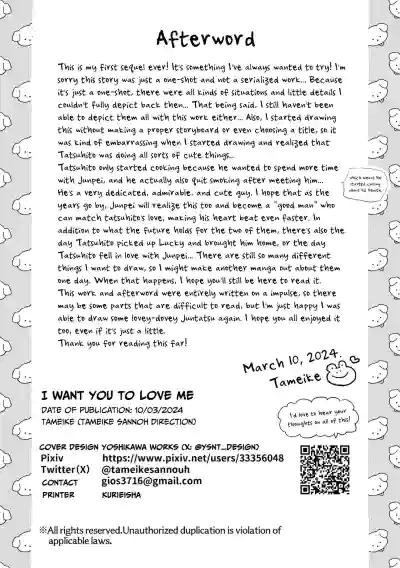 Afterword
This is my first sequel ever! It's something I've always wanted to try! I'm
sorry this story was just a one-shot and not a serialized work... Because
it's just a one-shot, there were all kinds of situations and little details I
couldn't fully depict back then... That being said, I still haven't been
able to depict them all with this work either... Also, I started drawing
this without making a proper storyboard or even choosing a title, so it
was kind of embarrassing when I started drawing and realized that
Tatsuhito was doing all sorts of cute things...
Tatsuhito only started cooking because he wanted to spend more time
with Junpei, and he actually also quit smoking after meeting him...
He's a very dedicated, admirable, and cute guy. I hope that as the
years go by, Junpei will realize this too and become a "good man" who
can match tatsuhito's love, making his heart beat even faster. In
addition to what the future holds for the two of them, there's also the
day Tatsuhito picked up Lucky and brought him home, or the day
Tatsuhito fell in love with Junpei... There are still so many different
things I want to draw, so I might make another manga out about them
one day. When that happens, I hope you'll still be here to read it.
This work and afterword were entirely written on a impulse, so there
may be some parts that are difficult to read, but I'm just happy I was
able to draw some lovey-dovey Juntatsu again. I hope you all enjoyed it
too, even if it's just a little.
Thank you for reading this far!
March 10, 2024.
Tameike
I'd love to hear your
thoughts on all of this!
I WANT YOU TO LOVE ME
DATE OF PUBLICATION: 10/03/2024
TAMEIKE (TAMEIKE SANNOH DIRECTION)
COVER DESIGN YOSHIKAWA WORKS (X: @YSNT_DESIGN)
Pixiv https://www.pixiv.net/users/33356048
Twitter(X) @tameikesannouh
CONTACT gios3716@gmail.com
PRINTER KURIEISHA
※All rights reserved.Unauthorized duplication is violation of
applicable laws.